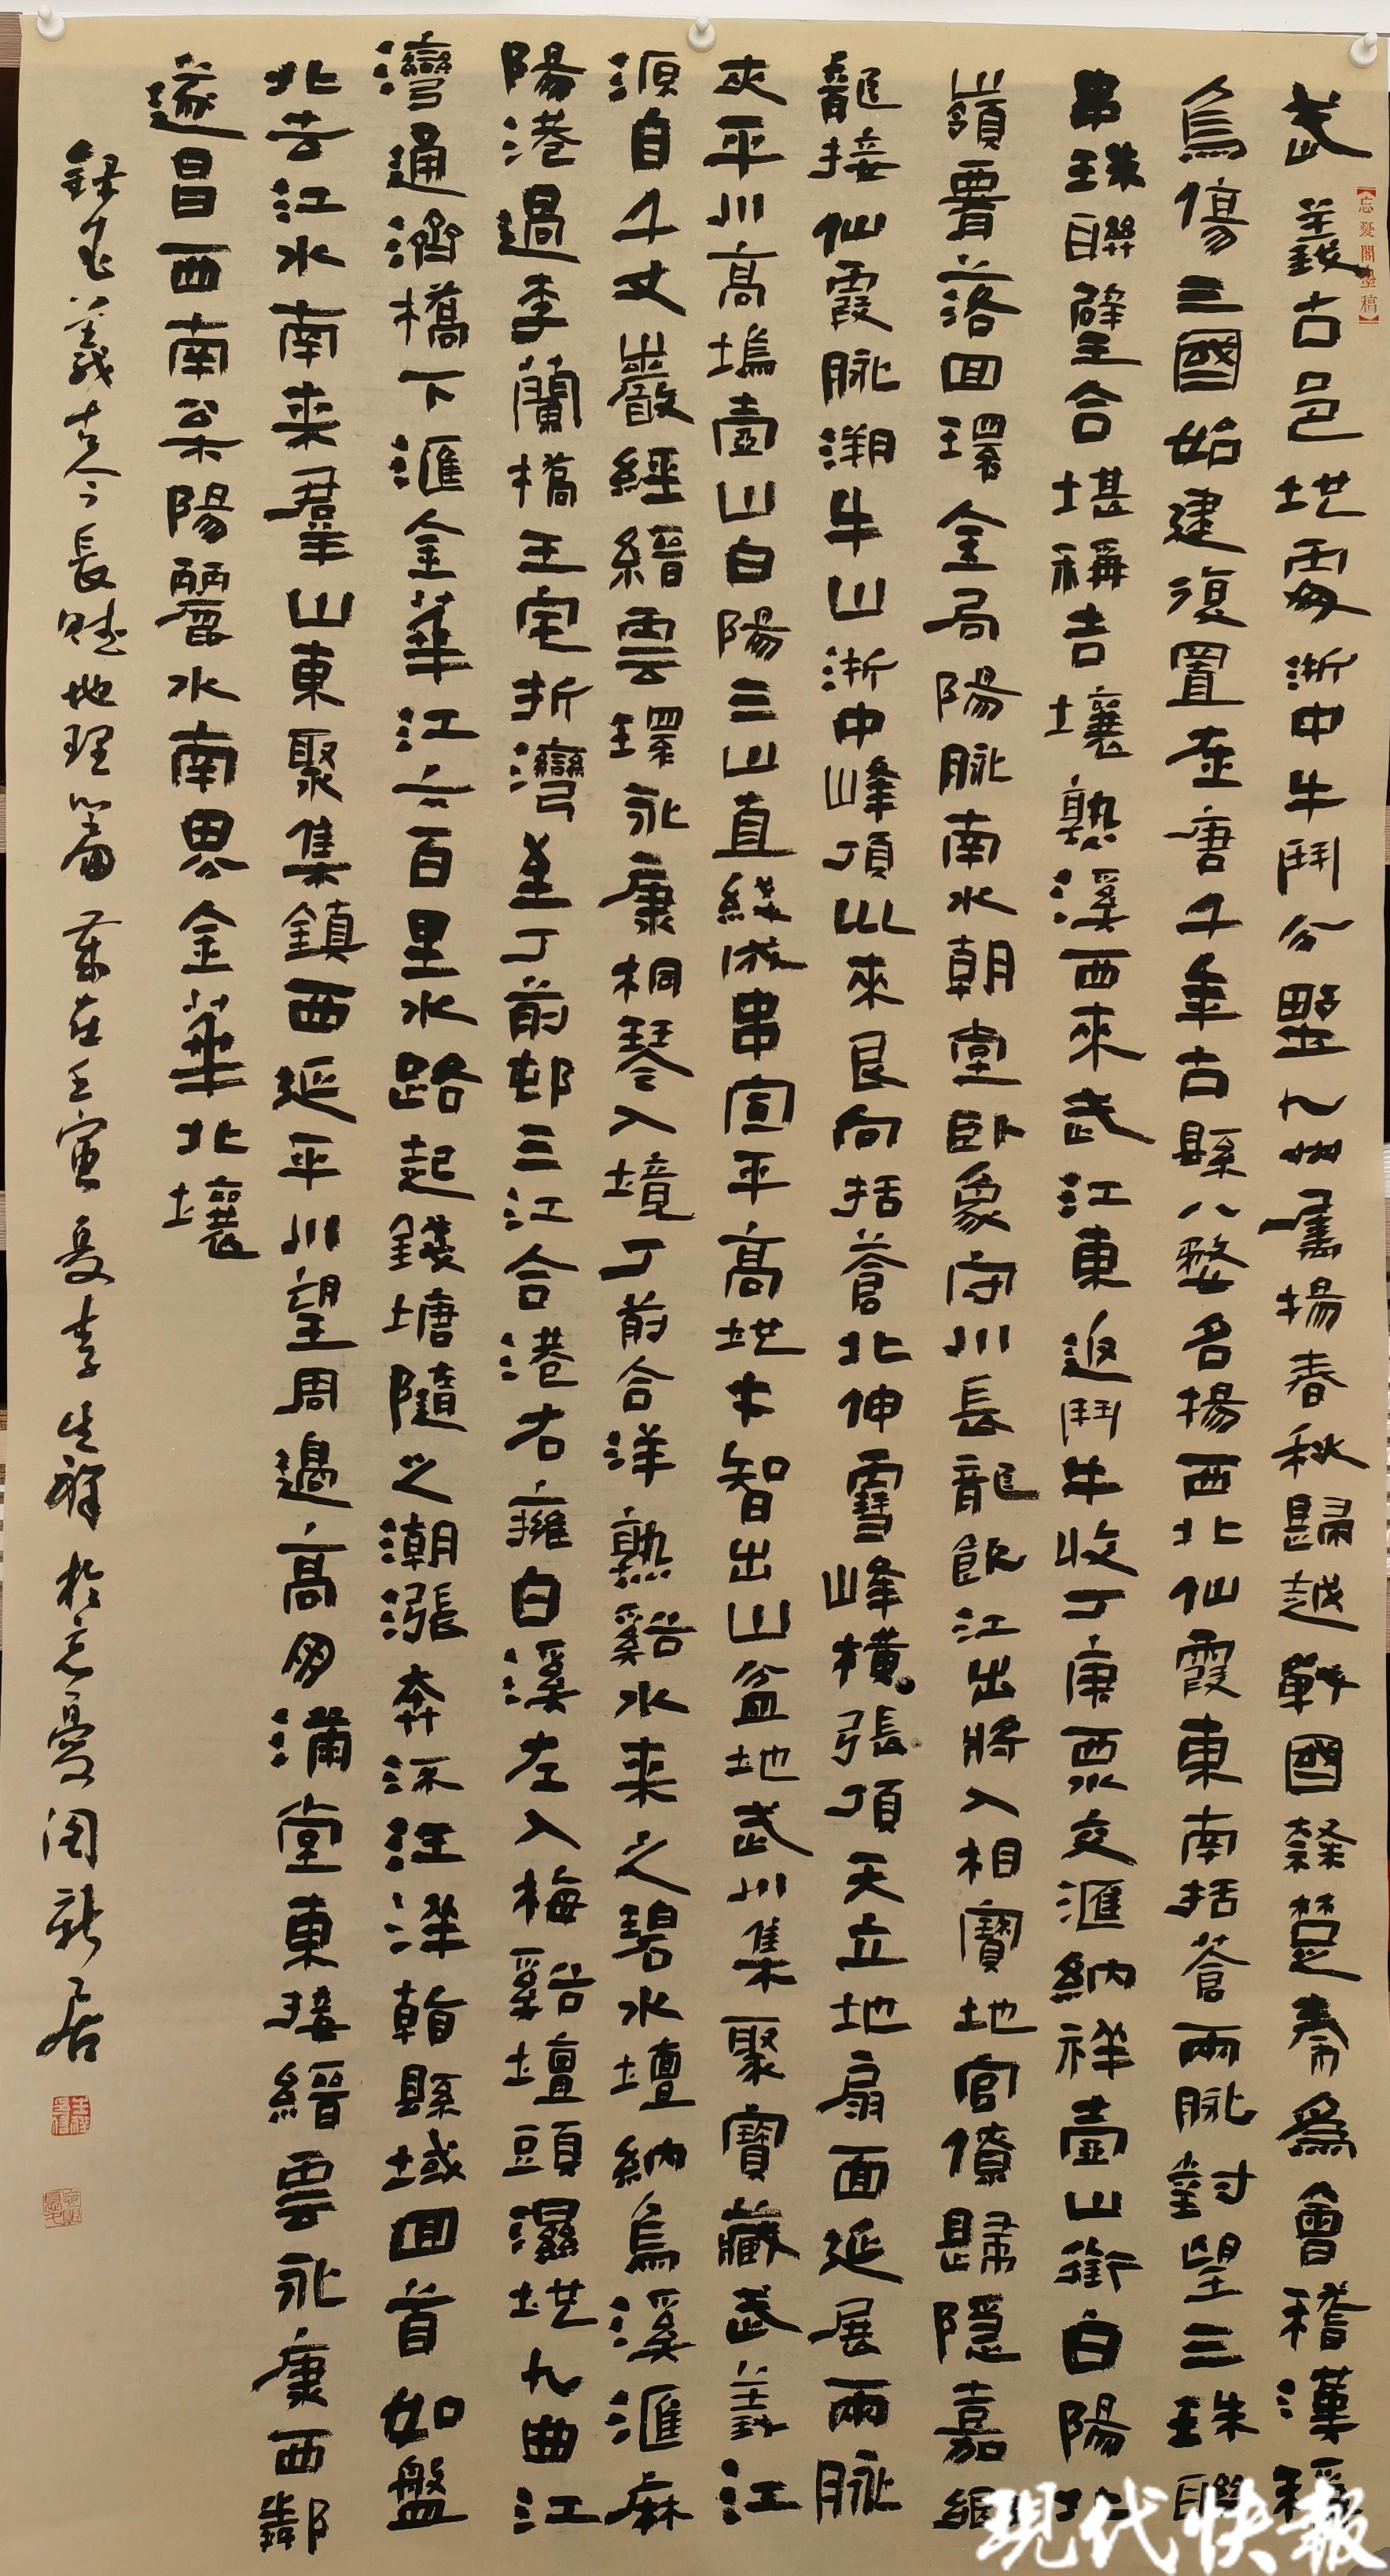 武義古邑地處浙中牛鬥分野九州屬揚春秋歸越戰國隸楚秦為會稽漢稱
烏傷三國始建復置盛唐千年古縣八婺名揚西北仙霞東南括蒼兩脈對望三珠聯
串珠聯璧合堪稱吉壤熟溪西來武江東返鬥牛收丁庚眾交滙納祥壺山銜白陽北
嶺署落回環全局陽脈南水朝堂臥象守川長龍飲江出將入相寶地官僚歸隱嘉
龍接仙霞脈溯牛山浙中峰頂此來艮向括蒼北伸雪峰橫張頂天立地扇面延展兩脈
夾平川高塢壺山白陽三山直綫成串宣平高地大智出山盆地武川集聚寶藏武義江
源自千丈巖經縉雲環永康桐琴入境丁前合洋熟谿水来之碧水壇納烏溪滙麻
陽港過李蘭橋王宅折灣至丁前邨三江合港右擁白溪左入梅谿壇頭濕地九曲江
灣通濟橋下滙金華江六百里水路起錢塘隨之潮漲奔流汪洋翰縣域回首如盤
北去江水南来羣山東聚集鎮西延平川望周邊高朋滿堂東接縉雲永康西鄰
遂昌西南枲陽麗水南界金華北壤
録武義古今長賦地理篇歲在壬寅夏李生祥於忘憂閣新居
忘憂閣墨稿
現代快報